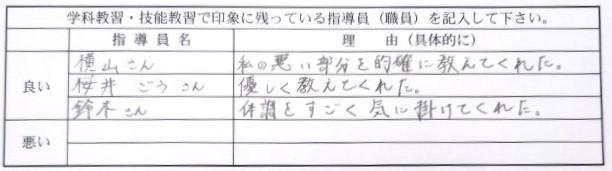 学科教習・技能教習で印象に残っている指導員（職員）を記入して下さい。
指導員名 理由（具体的に）
良い
横山さん 私の悪い部分を的確に教えてくれた。
桜井 ごうさん 優しく教えてくれた。
鈴木さん 体調をすごく気に掛けてくれた。
悪い